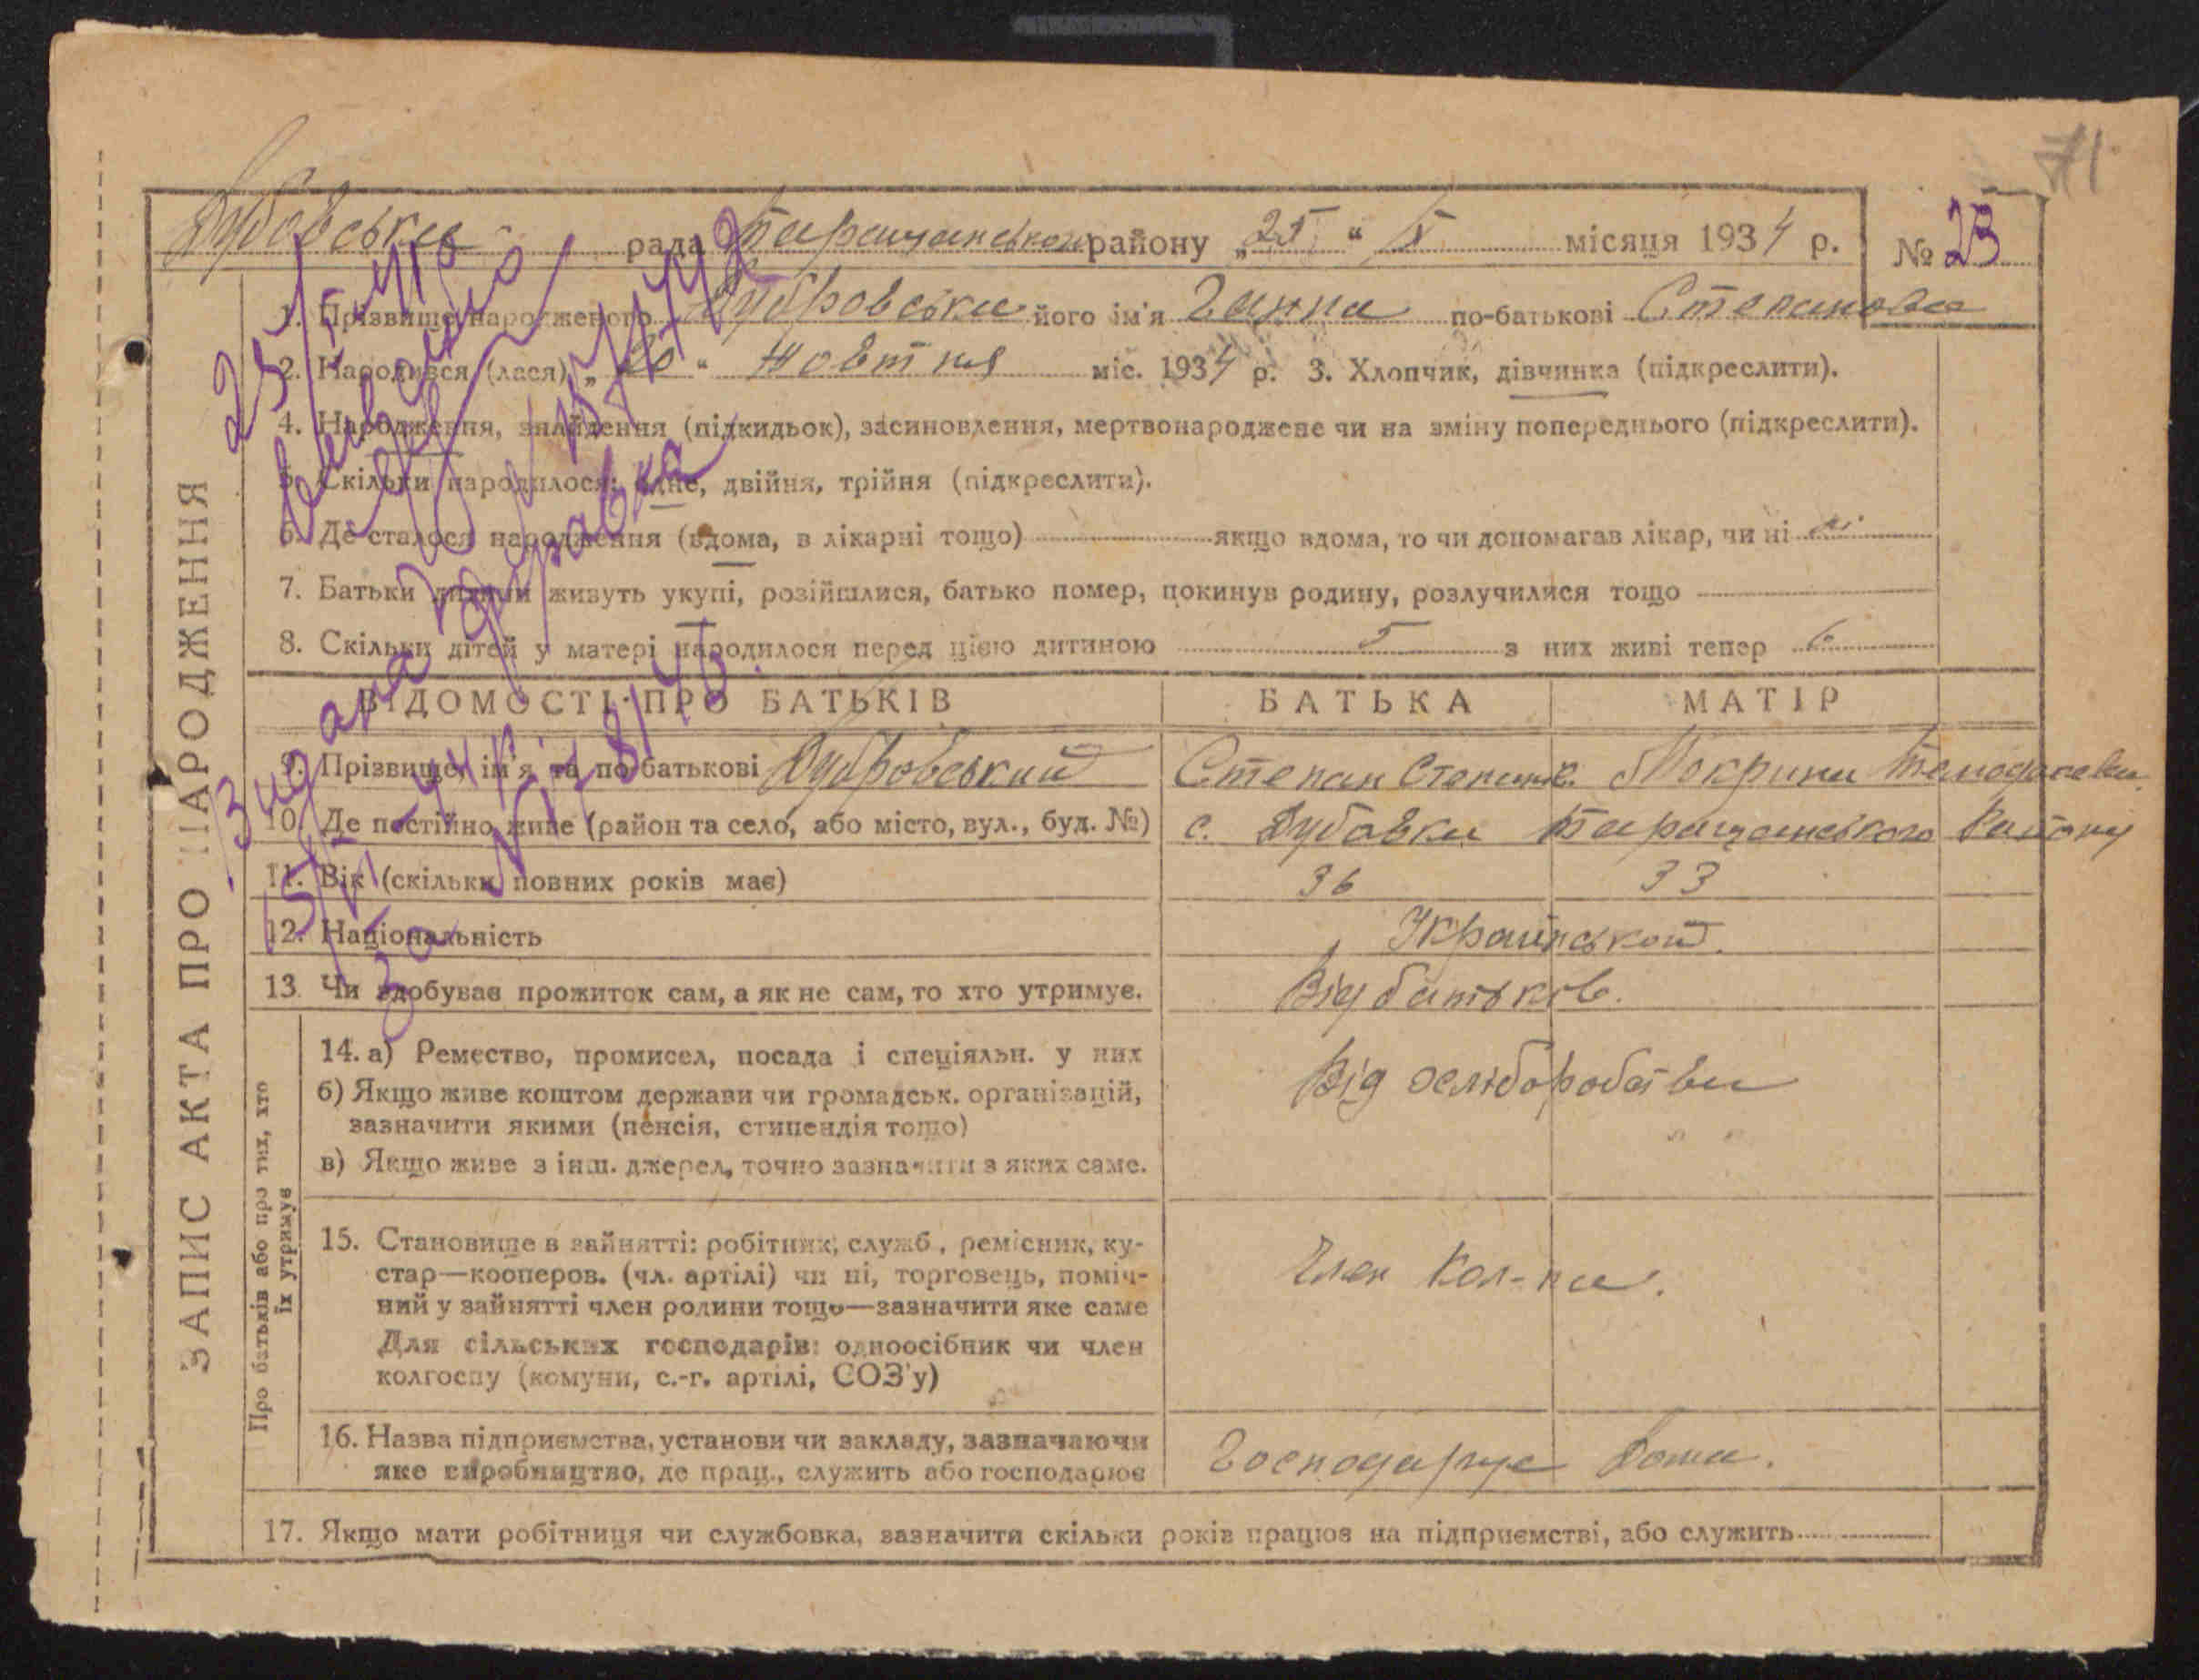 71
Дубовська рада Таращанського району „25" X місяця 1934 р. № 23
1. Прізвище народженого Дубровська його ім'я Ганна по-батькові Степанова
2. Народився (лася) „20" Жовтня міс. 1934 р. 3. Хлопчик, дівчинка (підкреслити).
4. Народження, знайдення (підкидьок), засиновлення, мертвонароджене чи на зміну попереднього (підкреслити).
5. Скільки народилося: одне, двійня, трійня (підкреслити).
6. Де сталося народження (вдома, в лікарні тощо) якщо вдома, то чи допомагав лікар, чи ні ні
7. Батьки дитини живуть укупі, розійшлися, батько помер, покинув родину, розлучилися тощо
8. Скільки дітей у матері народилося перед цією дитиною 5 з них живі тепер 6
ВІДОМОСТІ ПРО БАТЬКІВ БАТЬКА МАТІР
9. Прізвище, ім'я та по батькові Дубровський Степан Степанов. Мокрина
10. Де постійно живе (район та село, або місто, вул., буд. №) с. Дубовка Таращанського Району
11. Вік (скільки повних років має) 36 33
12. Національність Української
13. Чи здобував прожиток сам, а як не сам, то хто утримує. Від батьків.
14. а) Ремество, промисел, посада і спеціяльн. у них
б) Якщо живе коштом держави чи громадськ. організацій,
зазначити якими (пенсія, стипендія тощо)
в) Якщо живе з інш. джерел, точно зазначити з яких саме.
Від хліборобства
15. Становище в зайнятті: робітник, служб., ремісник, ку-
стар—кооперов. (чл. артілі) чи ні, торговець, поміч-
ний у зайнятті член родини тощо—зазначити яке саме
Для сільських господарів: одноосібник чи член
колгоспу (комуни, с.-г. артілі, СОЗ'у)
Член Кол-па.
16. Назва підприємства, установи чи закладу, зазначаючи
яке виробництво, де прац., служить або господарює
Господарує Дома.
17. Якщо мати робітниця чи службовка, зазначити скільки років працює на підприємстві, або служить
ЗАПИС АКТА ПРО НАРОДЖЕННЯ
Про батьків або про тих, хто
їх утримує
Видана
довідка